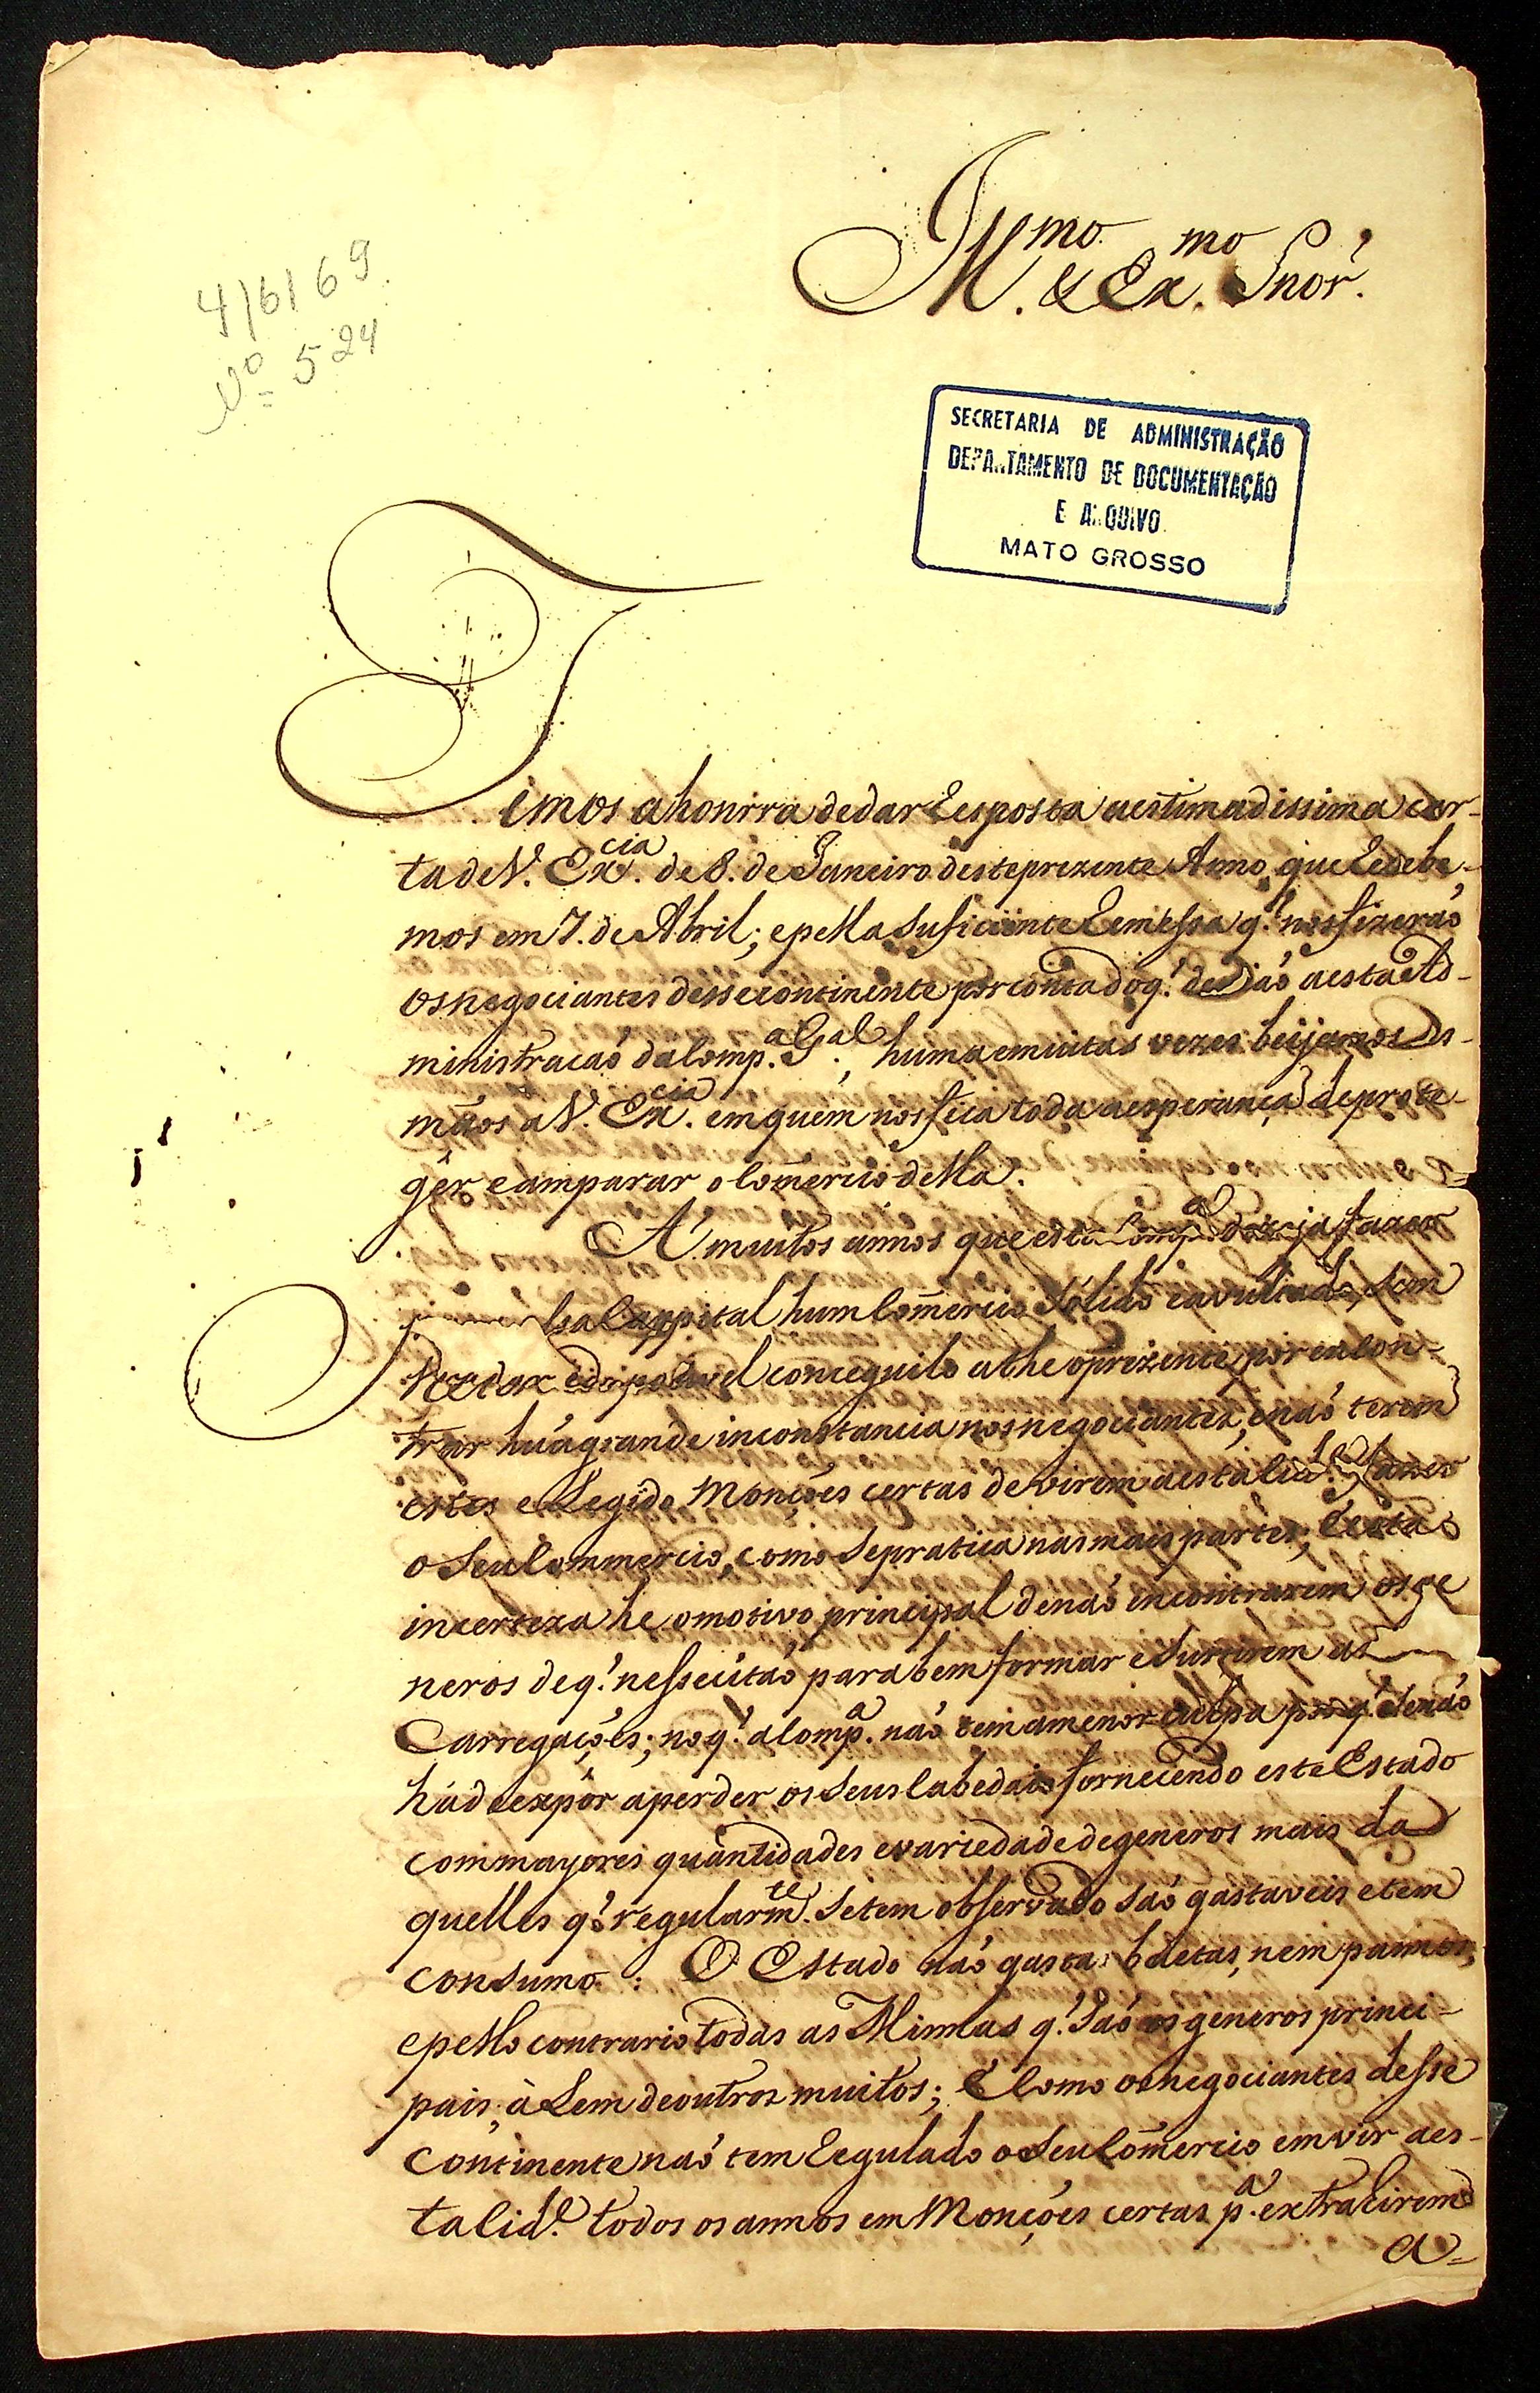 Illmo. & Exmo. Snor.
4/6/69
Nº 524
SECRETARIA DE ADMINISTRAÇÃO
DEPARTAMENTO DE DOCUMENTAÇÃO
E ARQUIVO
MATO GROSSO
Temos a honrra de dar Resposta a estimadissima car-
ta de V. Excia. de 8. de Janeiro deste prezente Anno, que Recebe-
mos em 7. de Abril; e pella suficiente Remessa q.' nos fizeraó
os negociantes desse continente por conta do q.' deviaó a esta Ad-
ministracaó da Comp.a G.al, huma e muitas vezes beijamos as
maós a V. Excia. em quem nos fica toda a esperança de prote-
ger e amparar o Comercio della.
A' muitos annos que esta Comp.a dezeja fazer
Cappital hum Comercio sólido e avultado, sem
conseguilo athe o prezente, por encon-
trar húa grande inconstancia nos negociantes, e naó terem
estes elegido Monçóes certas de virem a esta Cid.e fazer
o seu Commercio, como se pratica nas mais partes; e esta
incerteza he o motivo principal de naó encontrarem os ge
neros de q.' nessecitaó para bem formar e surtirem as
Carregaçóes; no q.' a Comp.a naó tem a menor culpa porq.' se naó
há de expôr a perder os seus Cabedais fornecendo este Estado
com mayores quantidades e variedade de generos mais da
quelles q.' regularm.te se tem observado saó gastaveis e tem
consumo: O Estado naó gasta baetas, nem pannos,
e pello contrario todas as Minnas q.' saó os generos princi-
pais, à Lem de outros muitos; E como os negociantes desse
continente naó tem Regulado o seu Comercio em vir a es-
ta Cid.e todos os annos em Monçóes certas p.a extrahirem
a-